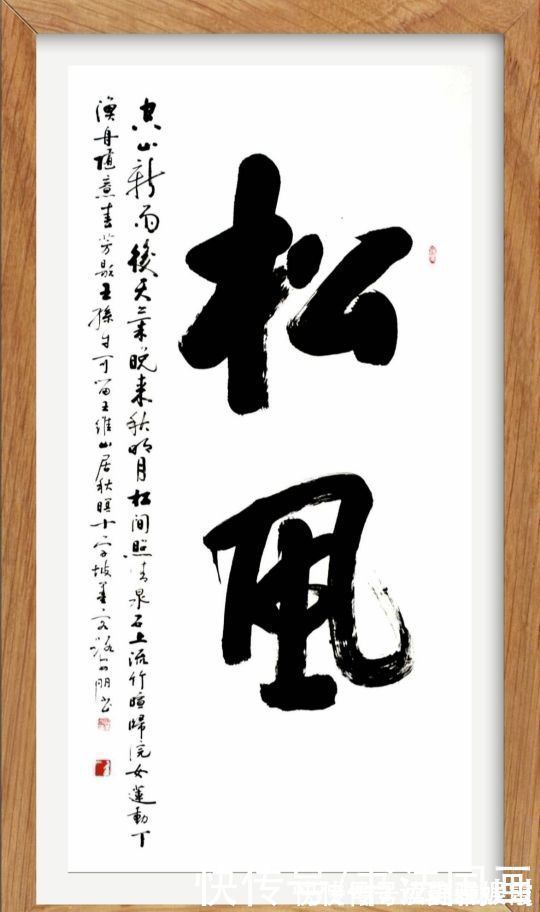 松風
空山新雨後天氣晚来秋明月松間照清泉石上流竹喧歸浣女蓮動下
漁舟隨意春芳歇王孫自可留王維山居秋暝十字坡朋書
快传号/